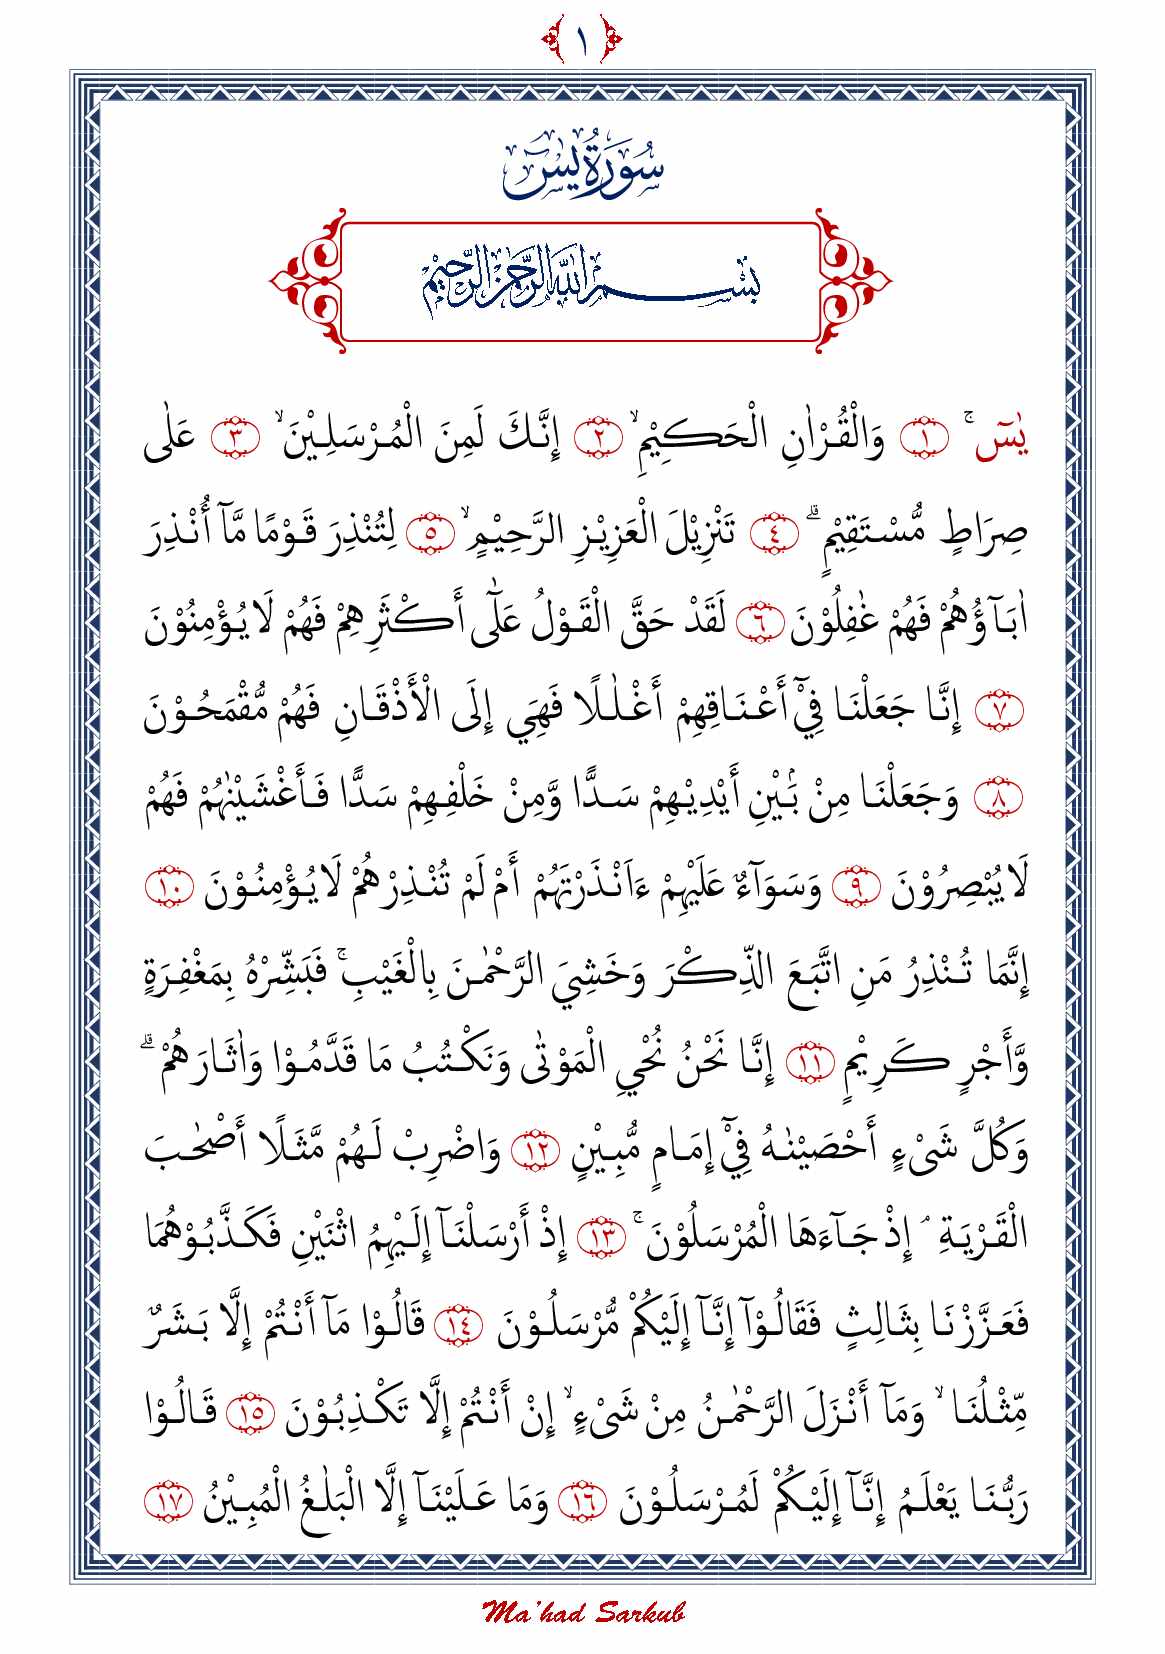 ﴿ ١ ﴾
سُوْرَةُ يٰسٓ
بِسْمِ اللّٰهِ الرَّحْمٰنِ الرَّحِيْمِ
يٰسٓ ۚ ١ وَالْقُرْاٰنِ الْحَكِيْمِ ۙ ٢ إِنَّكَ لَمِنَ الْمُرْسَلِيْنَ ۙ ٣ عَلٰى
صِرَاطٍ مُّسْتَقِيْمٍ ۗ ٤ تَنْزِيْلَ الْعَزِيْزِ الرَّحِيْمِ ۙ ٥ لِتُنْذِرَ قَوْمًا مَّآ أُنْذِرَ
اٰبَآؤُهُمْ فَهُمْ غٰفِلُوْنَ ٦ لَقَدْ حَقَّ الْقَوْلُ عَلٰٓى أَكْثَرِهِمْ فَهُمْ لَا يُؤْمِنُوْنَ
٧ إِنَّا جَعَلْنَا فِيْٓ أَعْنَاقِهِمْ أَغْلٰلًا فَهِيَ إِلَى الْأَذْقَانِ فَهُمْ مُّقْمَحُوْنَ
٨ وَجَعَلْنَا مِنْۢ بَيْنِ أَيْدِيْهِمْ سَدًّا وَّمِنْ خَلْفِهِمْ سَدًّا فَأَغْشَيْنٰهُمْ فَهُمْ
لَا يُبْصِرُوْنَ ٩ وَسَوَآءٌ عَلَيْهِمْ ءَاَنْذَرْتَهُمْ أَمْ لَمْ تُنْذِرْهُمْ لَا يُؤْمِنُوْنَ ١٠
إِنَّمَا تُنْذِرُ مَنِ اتَّبَعَ الذِّكْرَ وَخَشِيَ الرَّحْمٰنَ بِالْغَيْبِ ۚ فَبَشِّرْهُ بِمَغْفِرَةٍ
وَّأَجْرٍ كَرِيْمٍ ١١ إِنَّا نَحْنُ نُحْيِ الْمَوْتٰى وَنَكْتُبُ مَا قَدَّمُوْا وَاٰثَارَهُمْ ۗ
وَكُلَّ شَيْءٍ أَحْصَيْنٰهُ فِيْٓ إِمَامٍ مُّبِيْنٍ ١٢ وَاضْرِبْ لَهُمْ مَّثَلًا أَصْحٰبَ
الْقَرْيَةِ ۘ إِذْ جَآءَهَا الْمُرْسَلُوْنَ ۚ ١٣ إِذْ أَرْسَلْنَآ إِلَيْهِمُ اثْنَيْنِ فَكَذَّبُوْهُمَا
فَعَزَّزْنَا بِثَالِثٍ فَقَالُوْٓا إِنَّآ إِلَيْكُمْ مُّرْسَلُوْنَ ١٤ قَالُوْا مَآ أَنْتُمْ إِلَّا بَشَرٌ
مِّثْلُنَا ۙ وَمَآ أَنْزَلَ الرَّحْمٰنُ مِنْ شَيْءٍ ۙ إِنْ أَنْتُمْ إِلَّا تَكْذِبُوْنَ ١٥ قَالُوْا
رَبُّنَا يَعْلَمُ إِنَّآ إِلَيْكُمْ لَمُرْسَلُوْنَ ١٦ وَمَا عَلَيْنَآ إِلَّا الْبَلٰغُ الْمُبِيْنُ ١٧
Ma'had Sarkub